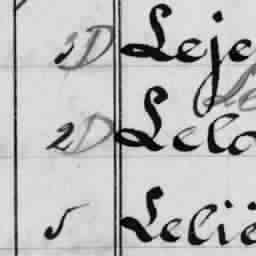 3D Leje
Le
2D Lelo
5 Lelië